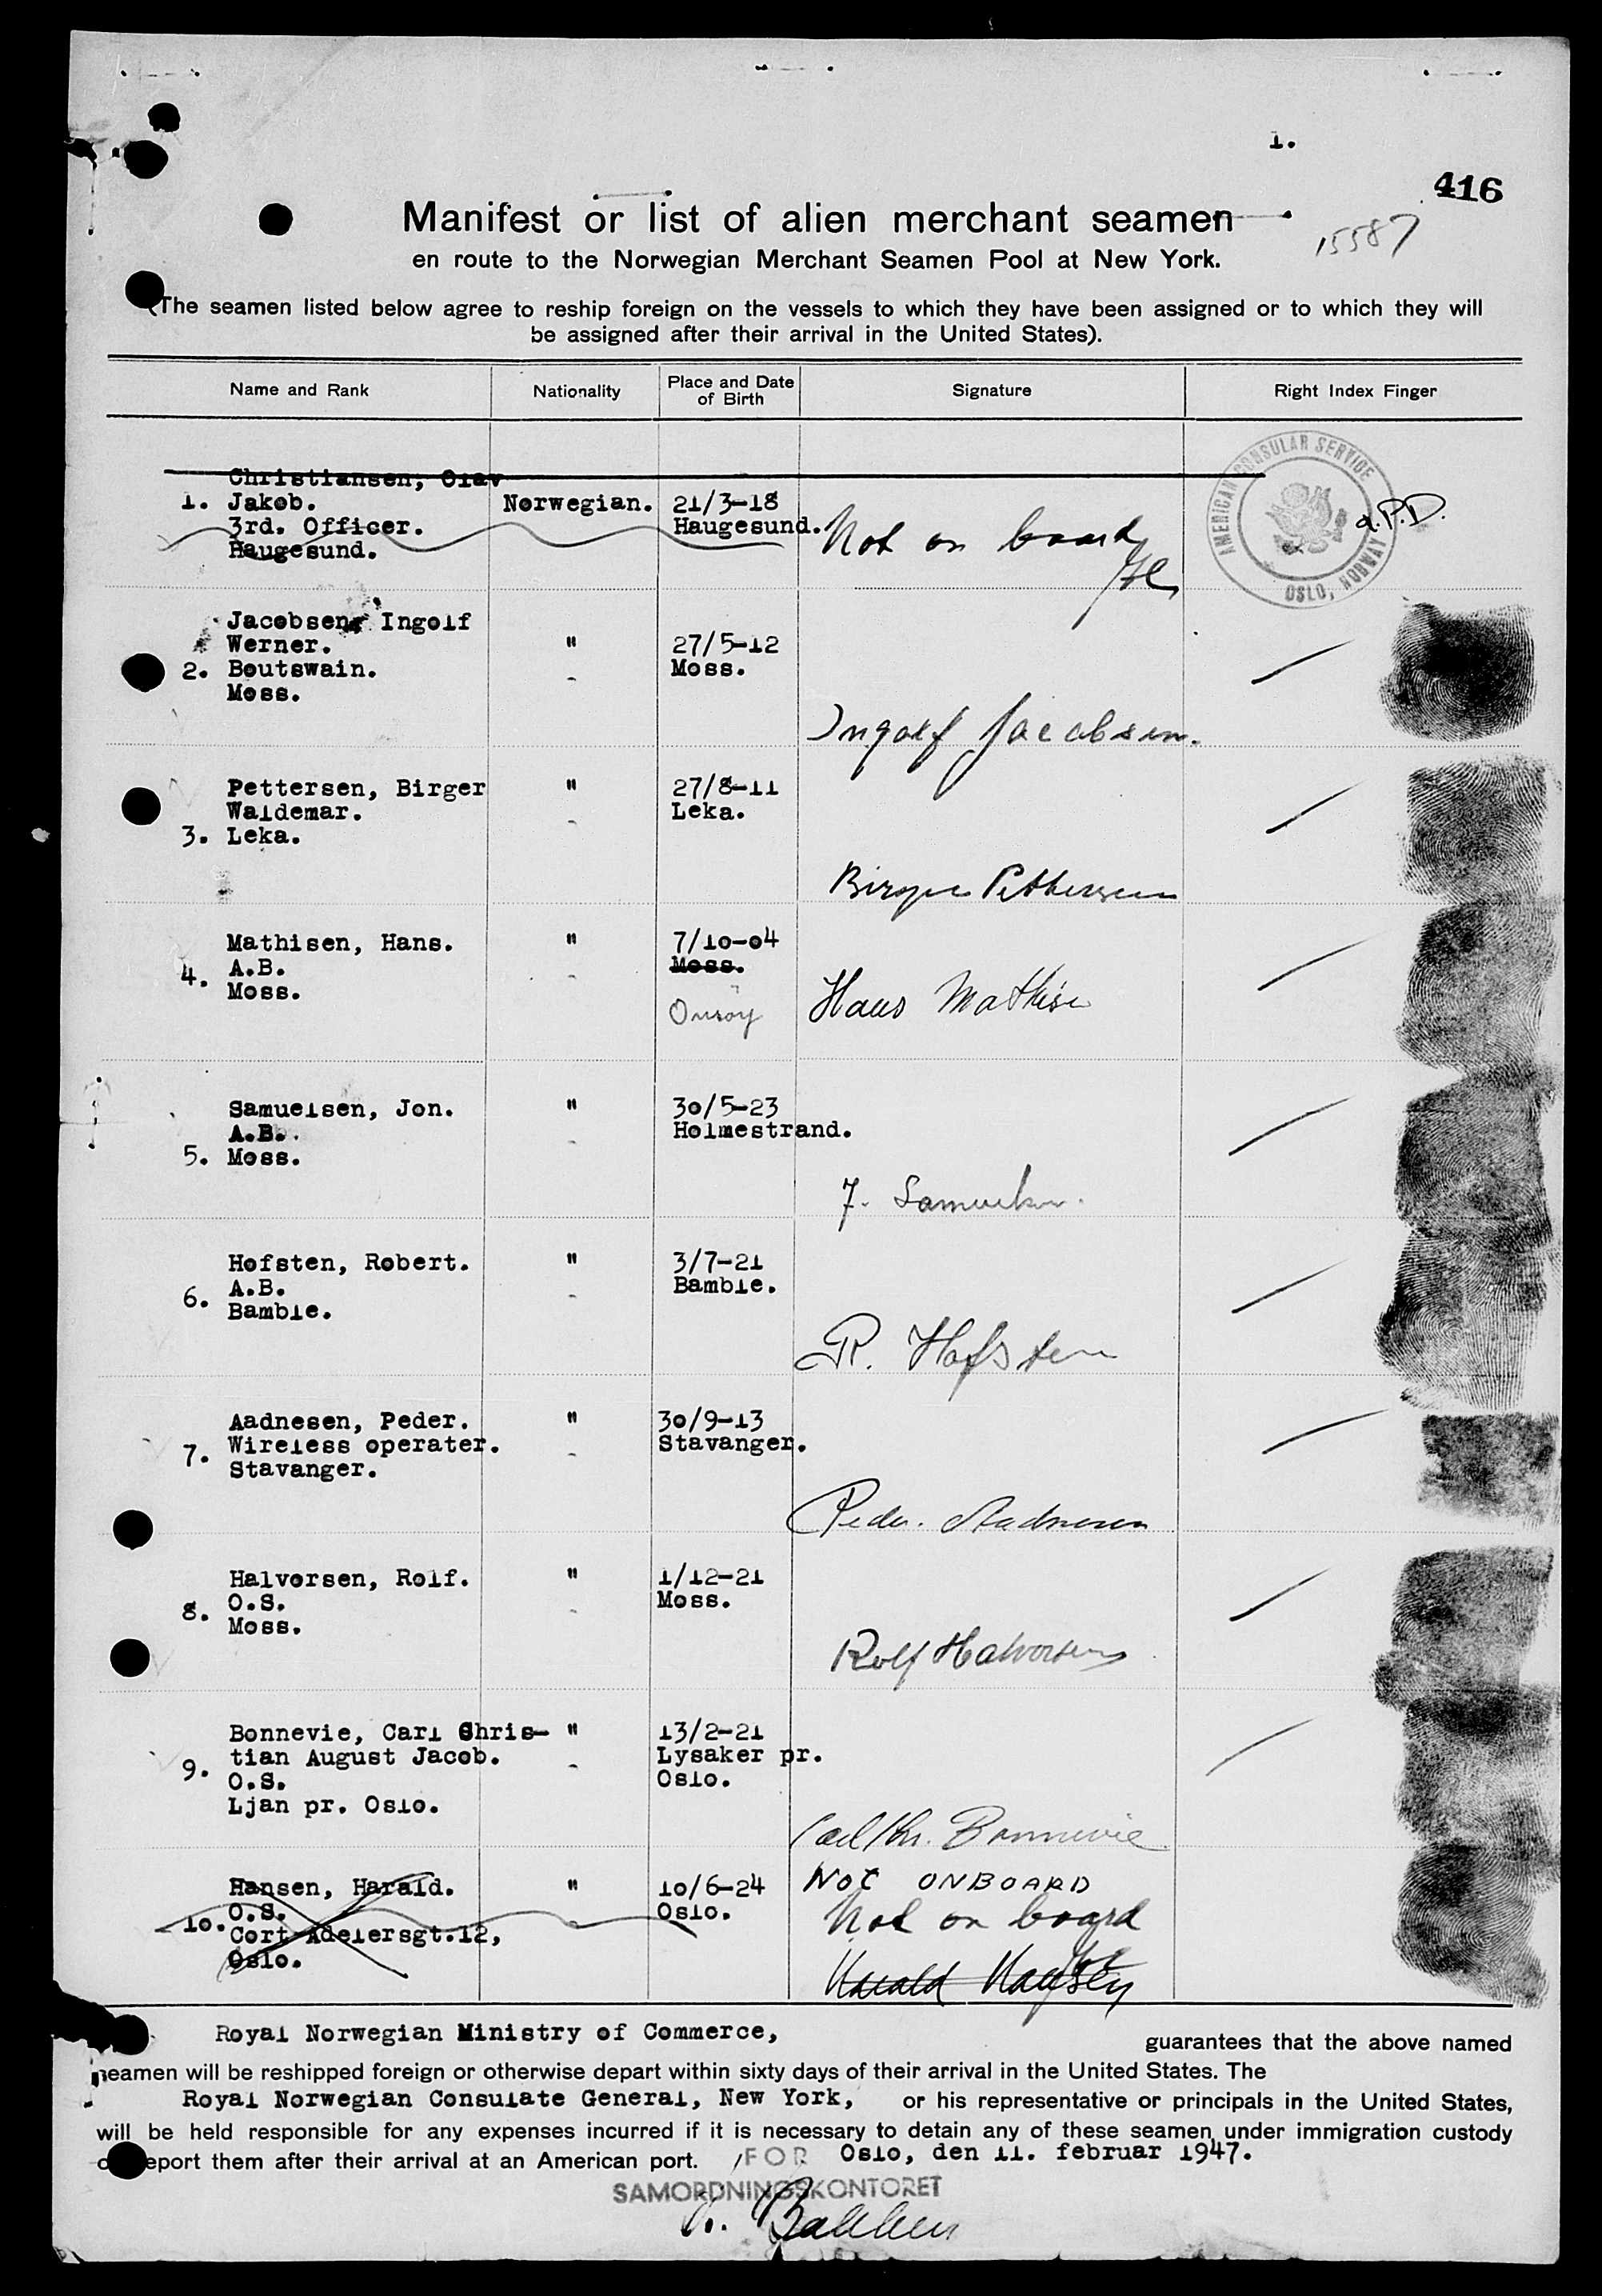 1.
416
15587
Manifest or list of alien merchant seamen
en route to the Norwegian Merchant Seamen Pool at New York.
(The seamen listed below agree to reship foreign on the vessels to which they have been assigned or to which they will
be assigned after their arrival in the United States).
Name and Rank
Nationality
Place and Date
of Birth
Signature
Right Index Finger
Christiansen, Olav
1. Jakob. Norwegian. 21/3-18
3rd. Officer. Haugesund.
Haugesund.
Not on board
AMERICAN CONSULAR SERVICE
OSLO, NORWAY
a.P.D.
Jacobsen, Ingolf
Werner. " 27/5-12
2. Boutswain. Moss.
Moss.
Ingolf Jacobsen.
Pettersen, Birger " 27/8-11
Waldemar. Leka.
3. Leka.
Birger Pettersen
Mathisen, Hans. " 7/10-04
4. A.B. Moss.
Moss.
Onsøy
Hans Mathisen
Samuelsen, Jon. " 30/5-23
A.B. Holmestrand.
5. Moss.
J. Samuelsen.
Hofsten, Robert. " 3/7-21
6. A.B. Bamble.
Bamble.
R. Hofsten
Aadnesen, Peder. " 30/9-13
7. Wireless operater. Stavanger.
Stavanger.
Peder. Aadnesen
Halvorsen, Rolf. " 1/12-21
8. O.S. Moss.
Moss.
Rolf Halvorsen
Bonnevie, Carl Chris- " 13/2-21
tian August Jacob. Lysaker pr.
9. O.S. Oslo.
Ljan pr. Oslo.
Carl Chr. Bonnevie
Hansen, Harald. " 10/6-24
O.S. Oslo.
10. Cort Adelersgt.12,
Oslo.
NOT ONBOARD
Not on board
Harald Hansen
Royal Norwegian Ministry of Commerce, guarantees that the above named
seamen will be reshipped foreign or otherwise depart within sixty days of their arrival in the United States. The
Royal Norwegian Consulate General, New York, or his representative or principals in the United States,
will be held responsible for any expenses incurred if it is necessary to detain any of these seamen under immigration custody
eport them after their arrival at an American port. FOR Oslo, den 11. februar 1947.
SAMORDNINGSKONTORET